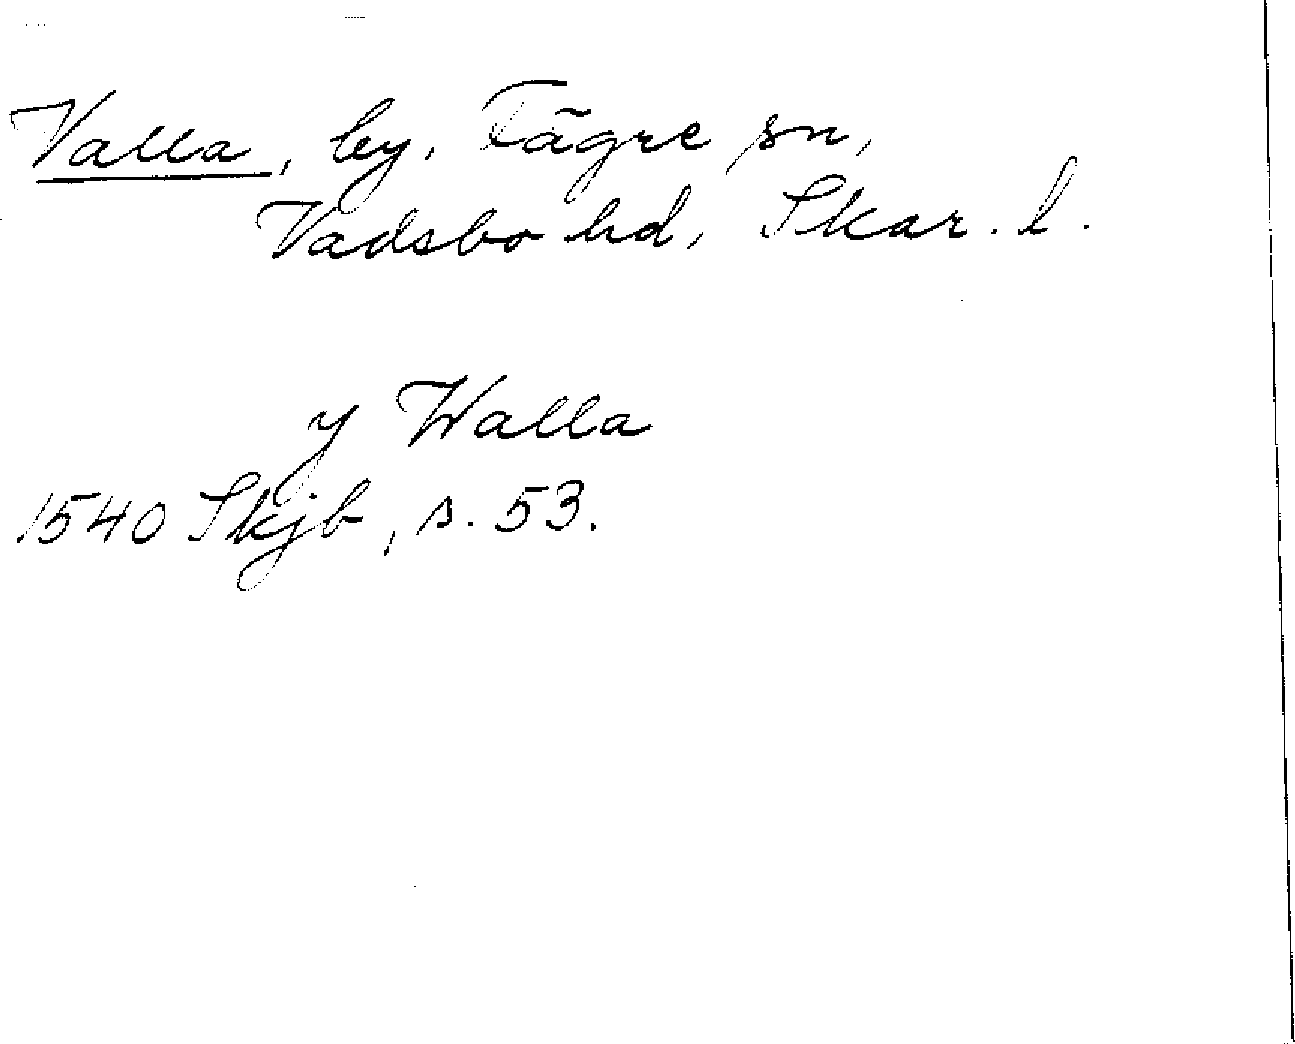 Valla, by, Fägre sn,
Vadsbo hd, Skar. l.
y Walla
1540 Skjb, s. 53.